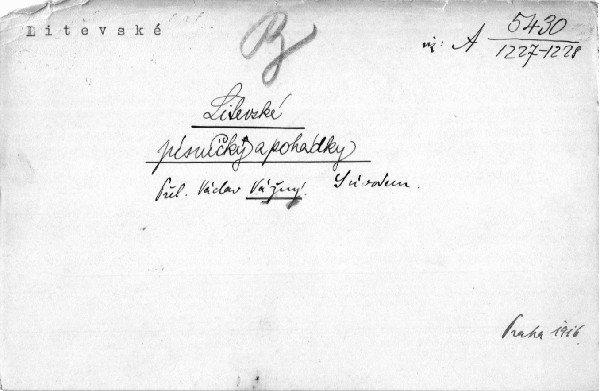 Litevské
viz: A 5430
1227-1228
Litevské
písničky a pohádky
Přel. Václav Vážný. S úvodem.
Praha 1916.